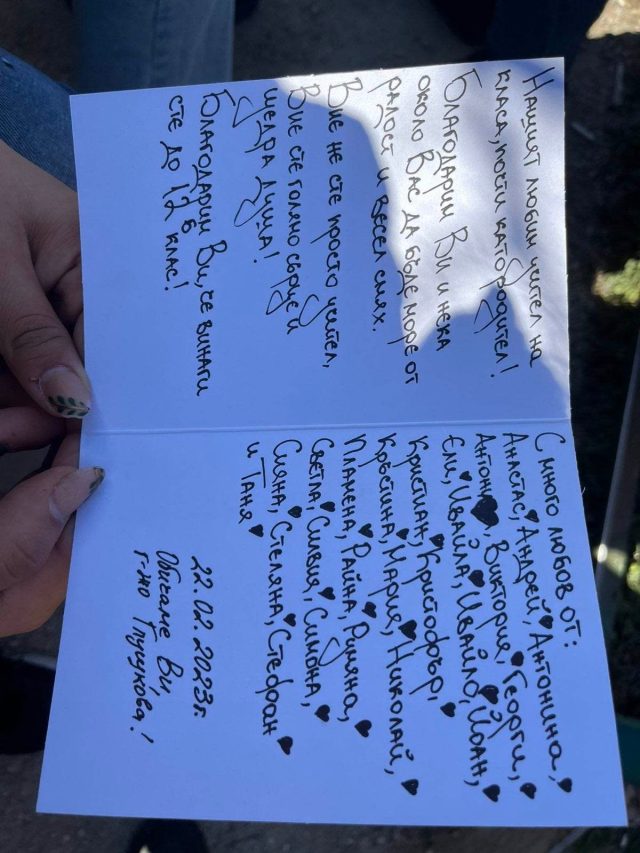 Нашият любим учител на
класа, почти като родител!
Благодарим Ви и нека
около Вас да бъде море от
радост и весел смях.
Вие не сте просто учител,
Вие сте голямо сърце и
щедра душа!
Благодарим Ви, че винаги
сте до 12 б
клас!
С много любов от:
Анастас, Андрей, Антонина,
Антони, Виктория, Георги,
Ели, Ивайла, Ивайло, Йоан,
Кристиан, Кристофър,
Кръстина, Мария, Николай,
Пламена, Райна, Румяна,
Светла, Силвия, Симона,
Сияна, Стеляна, Стефан
и Таня
22.02.2023г.
Обичаме Ви,
г-жо